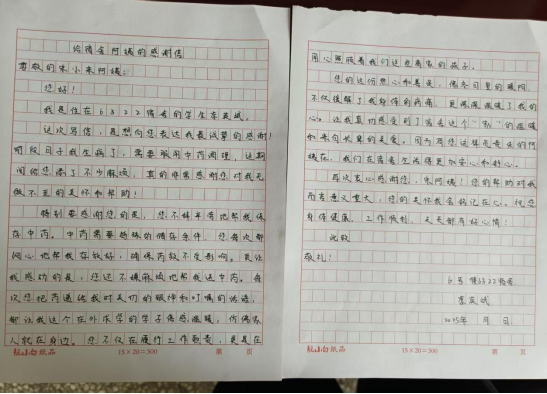 给宿舍阿姨的感谢信
尊敬的朱小米阿姨：
您好！
我是住在6322宿舍的学生
这次写信，是想向您表达我最诚挚的感谢！
前段日子我生病了，需要服用中药调理，这期
间给您添了不少麻烦，真的非常感谢您对我无
微不至的关怀和帮助！
特别要感谢您的是，您不辞辛苦地帮我保
存中药。中药需要特殊的储存条件，您每次都
细心地帮我存放好，确保药效不受影响。更让
我感动的是，您还不嫌麻烦地帮我送中药。每
次您把药递给我时关切的眼神和叮嘱的话语，
都让我这个在外求学的学子倍感温暖，仿佛家
人就在身边。您不仅在履行工作职责，更是在
航小白纸品
15×20=300
第 页
用心照顾着我们这些离家的孩子。
您的这份热心和善良，像冬日里的暖阳，
不仅缓解了我身体的病痛，更深深温暖了我的
心。让我真切感受到了宿舍这个“家”的温暖
和来自长辈的关爱。因为有您这样负责的阿
姨在，我们在宿舍生活得更加安心和舒心。
再次衷心感谢您，朱阿姨！您的帮助对我
而言意义重大，您的关怀我会铭记在心。祝您
身体健康、工作顺利，天天都有好心情！
此致
敬礼！
6号楼6322宿舍
2025年 月 日
航小白纸品
15×20=300
第 页